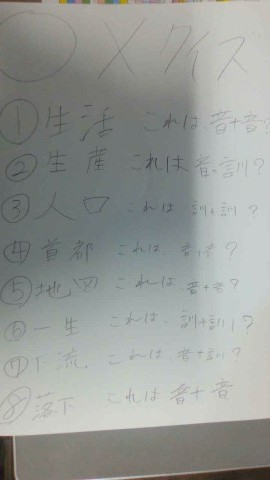 ○×クイズ
①生活 これは、音+音?
②生産 これは音+訓?
③人口 これは、訓+訓?
④首都 これは、音+音?
⑤地図 これは 音+音?
⑥一生 これは、訓+訓?
⑦下流 これは、音+訓?
⑧落下 これは音+音